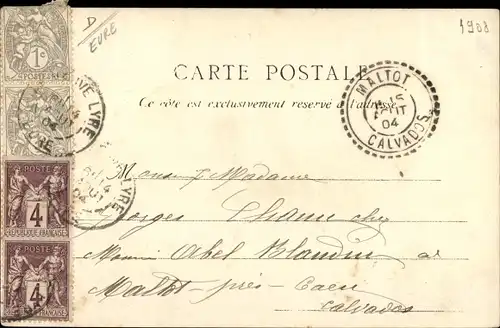 D
EURE
1908
1c
POSTES
CARTE POSTALE
Ce côté est exclusivement réservé à l'adresse
MALTOT
15
AOUT
04
CALVADOS
VE LYRE
EURE
04
POSTE
4
REPUBLIQUE FRANÇAISE
POSTE
4
Monsieur & Madame
Georges chez
Monsieur Abel Blandin
Maltot-près-Caen
Calvados